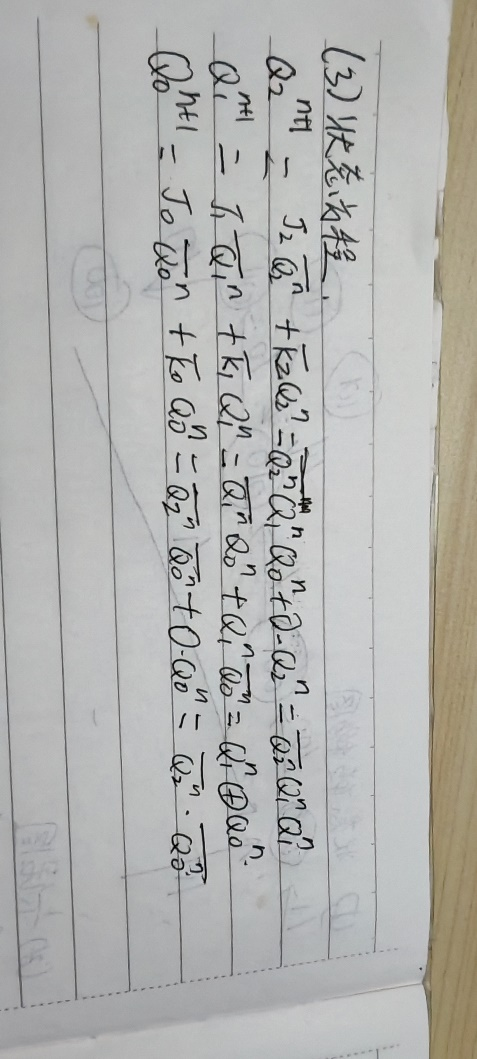 (3) 状态方程.
Q₂ⁿ⁺¹ = J₂ Q̅₂ⁿ + K̅₂Q₂ⁿ = Q̅₂ⁿ Q₁ⁿ Q₀ⁿ + 0·Q₂ⁿ = Q̅₂ⁿ Q₁ⁿ Q₁ⁿ
Q₁ⁿ⁺¹ = J₁ Q̅₁ⁿ + K̅₁ Q₁ⁿ = Q̅₁ⁿ Q₀ⁿ + Q₁ⁿ Q̅₀ⁿ = Q₁ⁿ ⊕ Q₀ⁿ.
Q₀ⁿ⁺¹ = J₀ Q̅₀ⁿ + K̅₀ Q₀ⁿ = Q̅₂ⁿ Q̅₀ⁿ + 0·Q₀ⁿ = Q̅₂ⁿ · Q̅₀ⁿ.